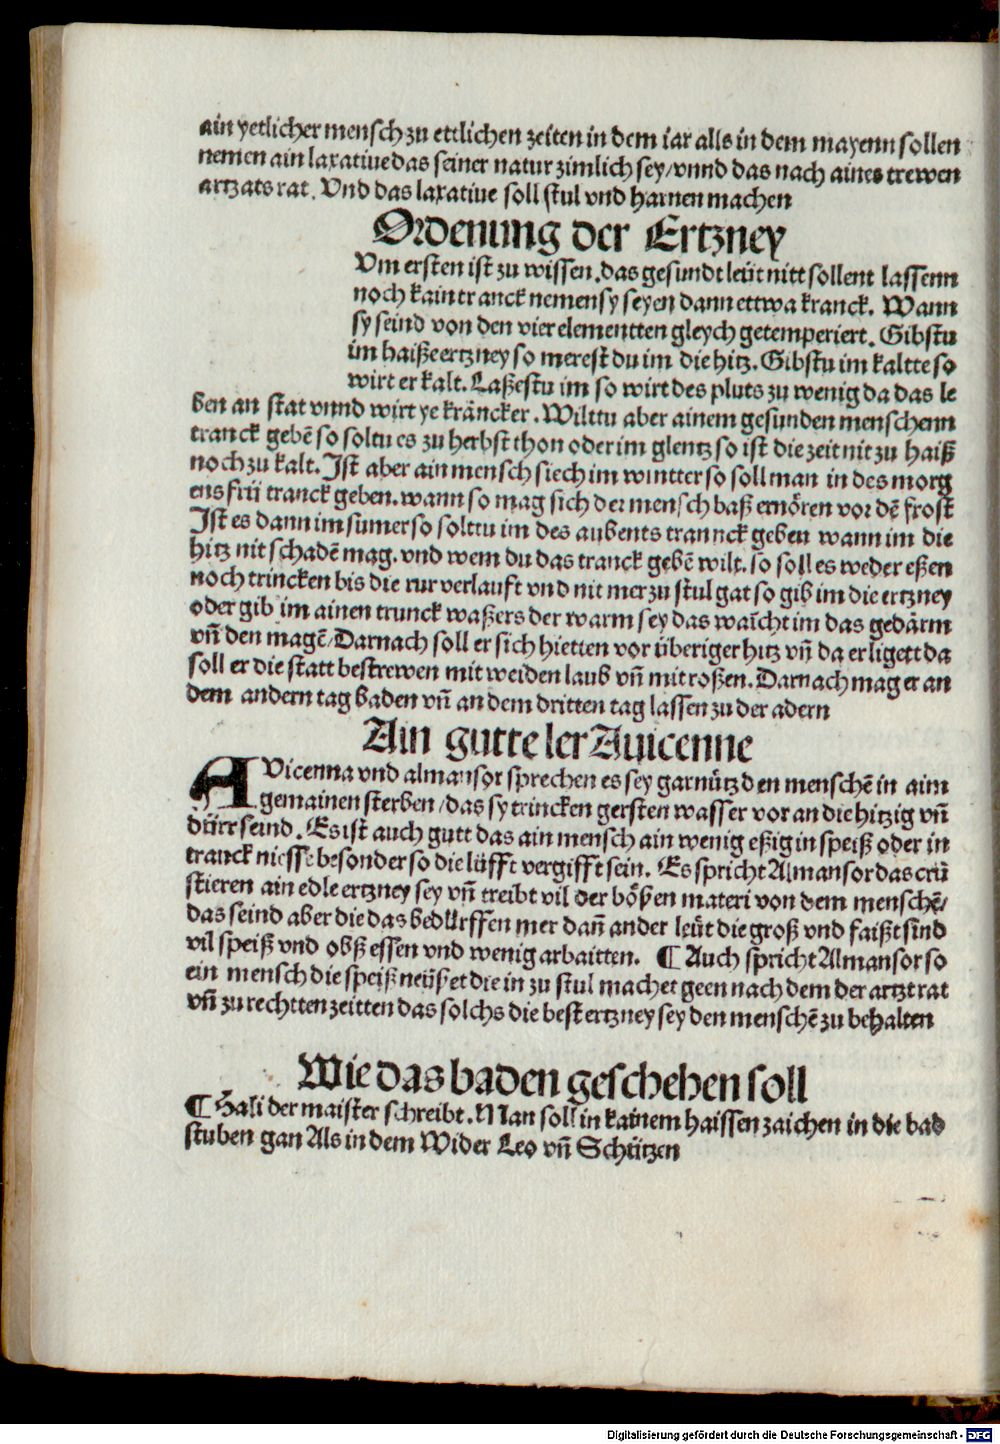 ain yetlicher mensch zu ettlichen zeiten in dem iar alls in dem mayenn sollen
nemen ain laxatiue das seiner natur zimlich sey/vnnd das nach aines trewen
artzats rat. Vnd das laxatiue soll stul vnd harnen machen
Ordenung der Ertzney
Vm ersten ist zu wissen. das gesundt leüt nitt sollent lassenn
noch kain tranck nemen sy seyen dann ettwa kranck. Wann
sy seind von den vier elementten gleych getemperiert. Gibstu
im haiße ertzney so merest du im die hitz. Gibstu im kaltte so
wirt er kalt. Laßestu im so wirt des pluts zu wenig da das le
ben an stat vnnd wirt ye kräncker. Wilttu aber ainem gesunden menschenn
tranck gebē so soltu es zu herbst thon oder im glentz so ist die zeit nit zu haiß
noch zu kalt. Ist aber ain mensch siech im wintter so soll man in des morg
ens frü tranck geben. wann so mag sich der mensch baß ernören vor dē frost
Ist es dann im sumer so solttu im des aubents tranck geben wann im die
hitz nit schadē mag. vnd wem du das tranck gebē wilt. so soll es weder eßen
noch trincken bis die rur verlauft vnd nit mer zu stul gat so gib im die ertzney
oder gib im ainen trunck waßers der warm sey das waīcht im das gedärm
vñ den magē/Darnach soll er sich hietten vor überiger hitz vñ da er ligett da
soll er die statt bestrewen mit weiden laub vñ mit roßen. Darnach mag er an
dem andern tag baden vñ an dem dritten tag lassen zu der adern
Ain gutte ler Auicenne
AVicenna vnd almansor sprechen es sey gar nütz den menschē in aim
gemainen sterben/das sy trincken gersten wasser vor an die hitzig vñ
dürr seind. Es ist auch gutt das ain mensch ain wenig eßig in speiß oder in
tranck niesse besonder so die lüfft vergifft sein. Es spricht Almansor das cru
stieren ain edle ertzney sey vñ treibt vil der bößen materi von dem menschē/
das seind aber die das bedürffen mer dañ ander leüt die groß vnd faißt sind
vil speiß vnd obß essen vnd wenig arbaitten. ¶ Auch spricht Almansor so
ein mensch die speiß neüßet die in zu stul machet geen nach dem der artzt rat
vñ zu rechtten zeitten das solchs die best ertzney sey den menschē zu behalten
Wie das baden geschehen soll
¶ Hali der maister schreibt. Man soll in kainem haissen zaichen in die bad
stuben gan Als in dem Wider Leo vñ Schützen
Digitalisierung gefördert durch die Deutsche Forschungsgemeinschaft - DFG